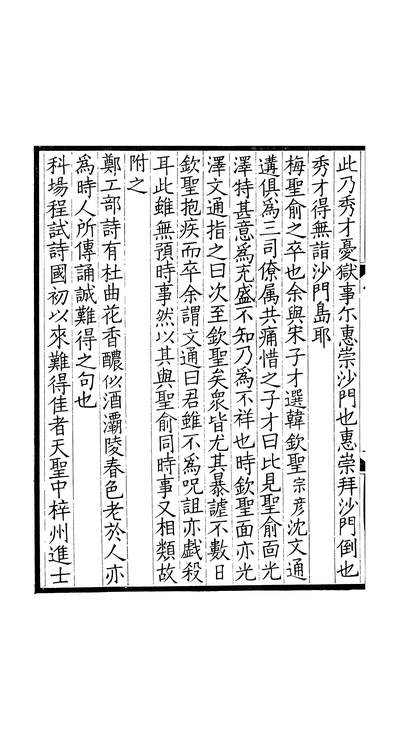 此乃秀才憂獄事尓惠崇沙門也惠崇拜沙門倒也
秀才得無詣沙門島耶
梅聖俞之卒也余與宋子才選韓欽聖宗彦沈文通
遘俱爲三司僚属共痛惜之子才曰比見聖俞面光
澤特甚意爲充盛不知乃爲不祥也時欽聖面亦光
澤文通指之曰次至欽聖矣衆皆尤其暴謔不數日
欽聖抱疾而卒余謂文通曰君雖不爲呪詛亦戯殺
耳此雖無預時事然以其與聖俞同時事又相類故
附之
鄭工部詩有杜曲花香醲似酒灞陵春色老於人亦
爲時人所傳誦誠難得之句也
科場程試詩國初以來難得佳者天聖中梓州進士